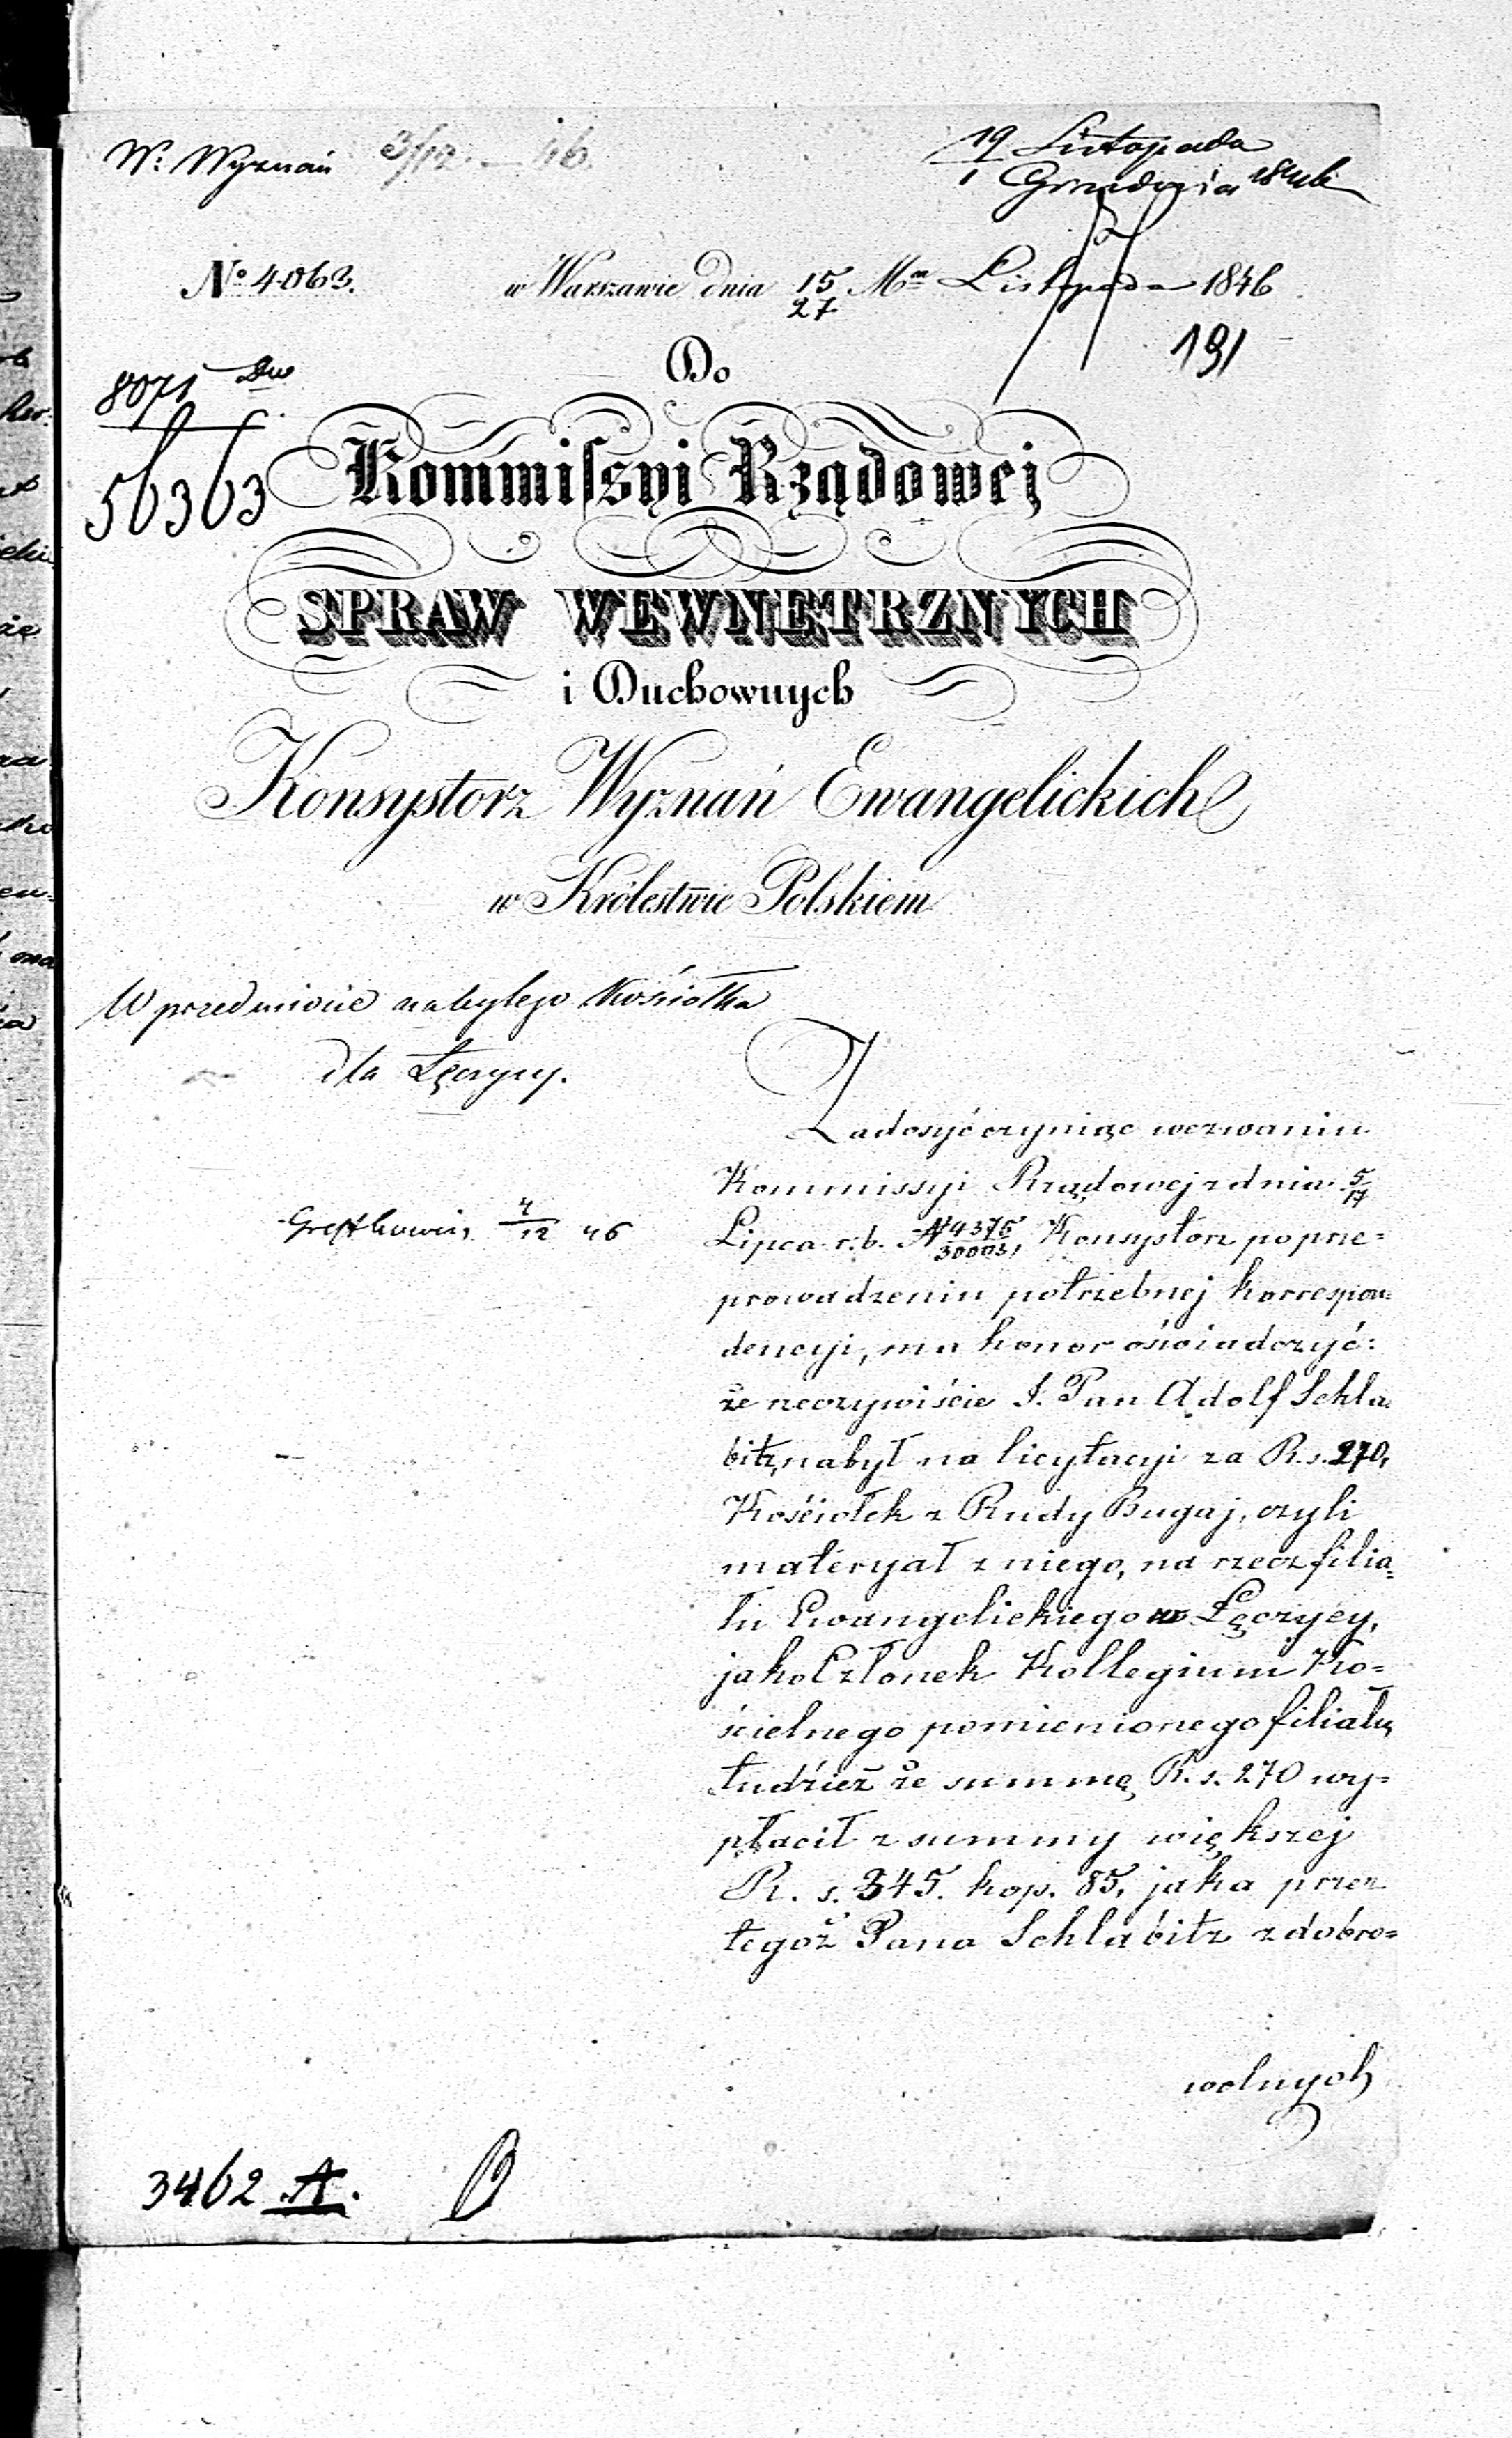 W: Wyznań 3/12. — 46.
19 Listopada
1 Grudnia 1846
No 4063. w Warszawie dnia 15 Mca Listopada 1846
27
191
8071 Dw
56363
Do
Kommissyi Rządowej
SPRAW WEWNĘTRZNYCH
i Duchownych
Konsystorz Wyznań Ewangelickich
w Królestwie Polskiem
W przedmiocie nabytego Kościołka
dla Łęczycy.
Zadosyć czyniąc wezwaniu
Kommissyi Rządowej z dnia 5/17
4/12 46
Lipca r. b. N 4375/30003, Konsystorz po prze=
prowadzeniu potrzebnej korrespon=
dencyi, ma honor oświadczyć:
że rzeczywiście J. Pan Adolf Schla=
bitz, nabył na licytacyi za R. s. 270,
Kościołek z Rudy Bugaj, czyli
materyał z niego, na rzecz filia=
łu Ewangelickiego w Łęczycy,
jako Członek Kollegium Ko=
ścielnego pomienionego filiału,
tudzież że summę R. s. 270 wy=
płacił z summy większej
R. s. 345. kop. 85, jaka przez
tegoż Pana Schlabitz z dobro=
wolnych
3462 A.